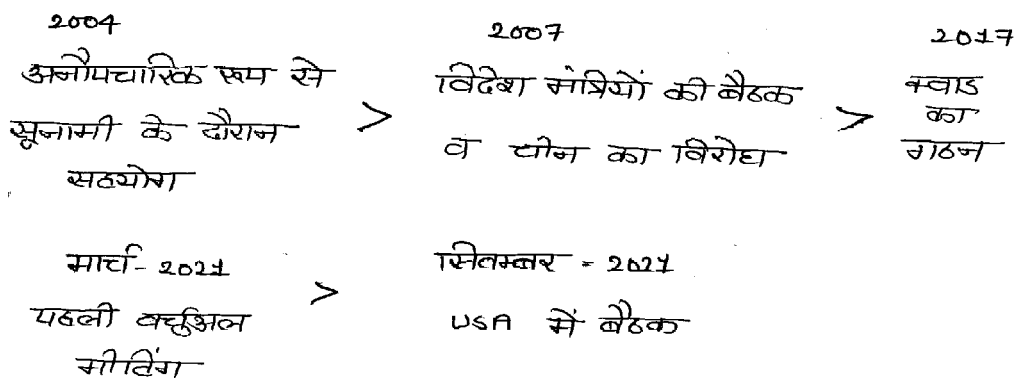 2004
अनौपचारिक रूप से
सूनामी के दौरान
सहयोग
>
2007
विदेश मंत्रियों की बैठक
व चीन का विरोध
>
2017
क्वाड
का
गठन
मार्च - 2021
पहली वर्चुअल
मीटिंग
>
सितम्बर - 2021
USA में बैठक